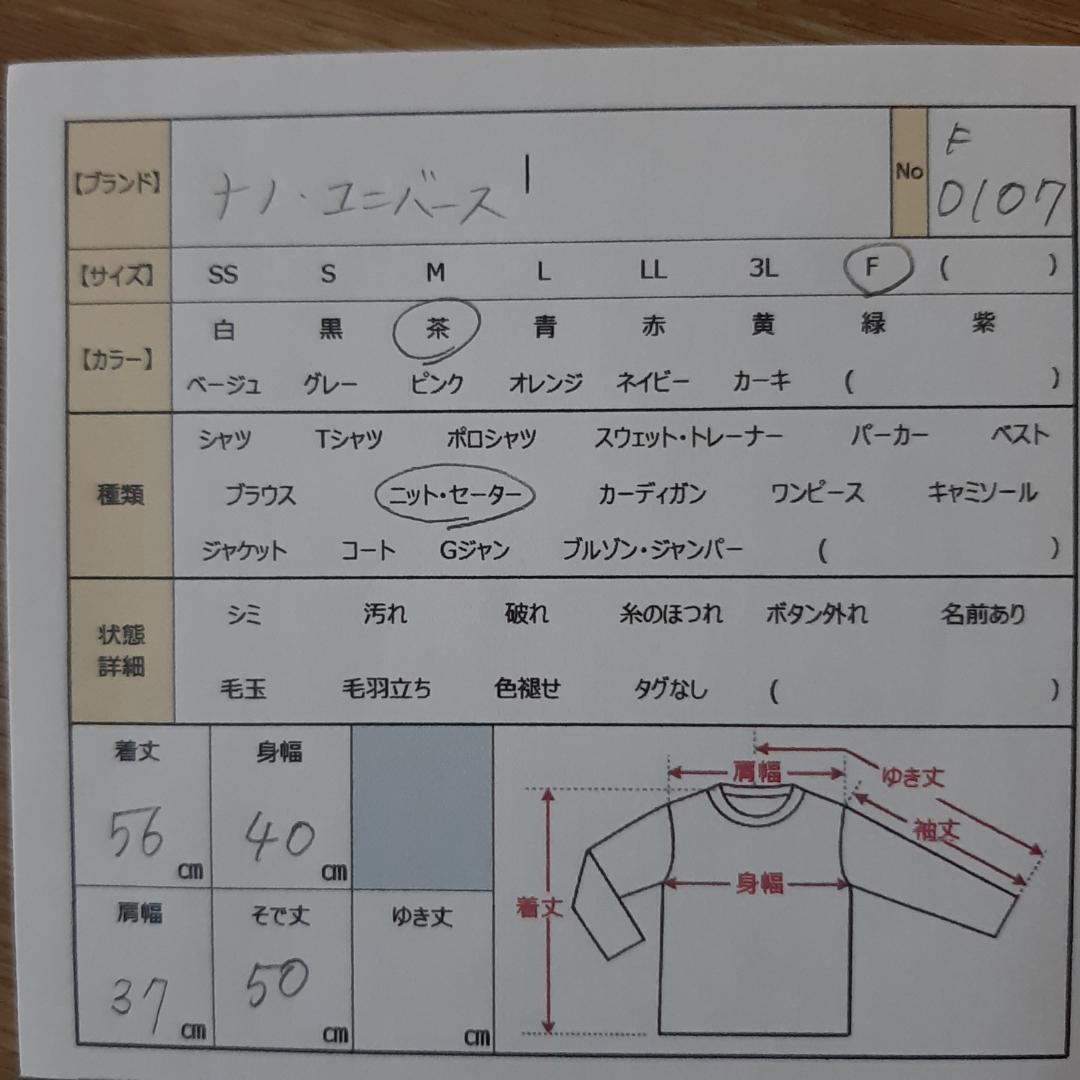 【ブランド】 ナノ・ユニバース No F
0107
【サイズ】 SS S M L LL 3L F ( )
【カラー】 白 黒 茶 青 赤 黄 緑 紫
ベージュ グレー ピンク オレンジ ネイビー カーキ ( )
種類 シャツ Tシャツ ポロシャツ スウェット・トレーナー パーカー ベスト
ブラウス ニット・セーター カーディガン ワンピース キャミソール
ジャケット コート Gジャン ブルゾン・ジャンパー ( )
状態
詳細
シミ 汚れ 破れ 糸のほつれ ボタン外れ 名前あり
毛玉 毛羽立ち 色褪せ タグなし ( )
着丈 身幅
56 cm 40 cm
肩幅 そで丈 ゆき丈
37 cm 50 cm cm
肩幅 ゆき丈
袖丈
身幅
着丈